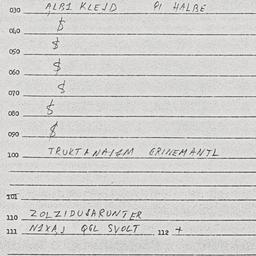 030 ALBI KLEJD PI HALBE
040 $
050 $
060 $
070 $
080 $
090 $
100 TRUKTANAIZM GRINEMANTL
101
110 ZOLZIDUSARUNTER
111 N1XAJ QGL SVOLT 112 +